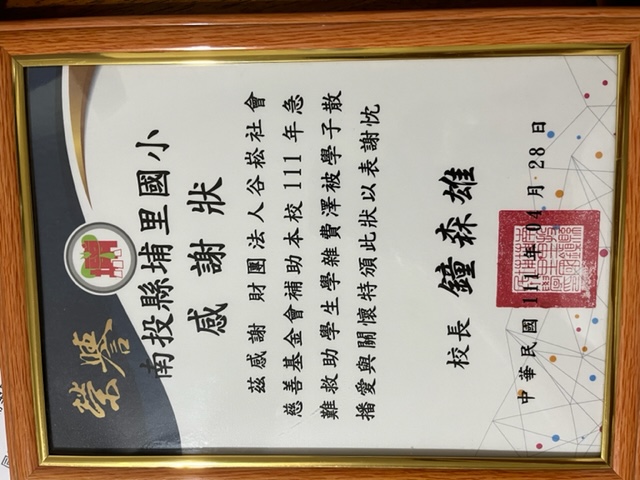 榮譽
南投縣埔里國小
感謝狀
茲感謝 財團法人谷崧社會
慈善基金會補助本校 111 年急
難救助學生學雜費澤被學子散
播愛與關懷特頒此狀以表謝忱
校長 鐘森雄
中華民國 111 年 04 月 28 日